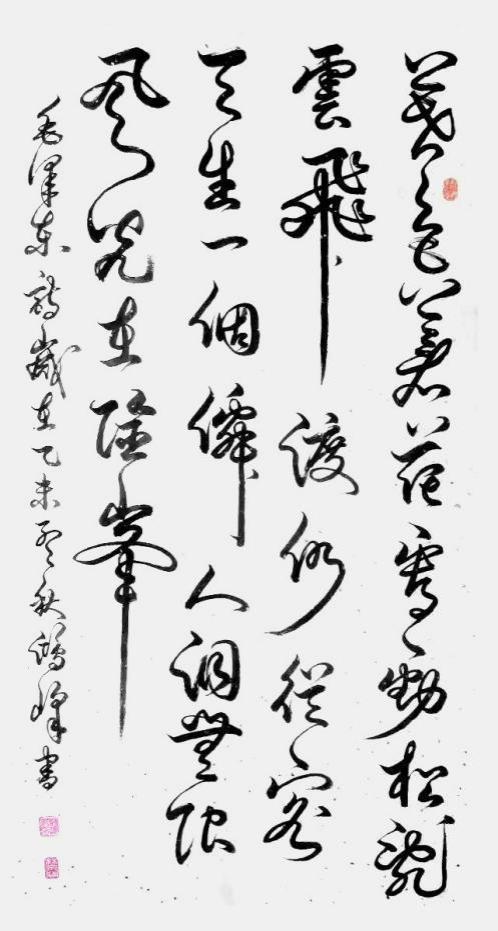 暮色蒼茫看勁松亂
雲飛渡仍從容
天生一個僊人洞無限
風光在險峯
毛澤東詩歲在乙未孟秋鴻峰書